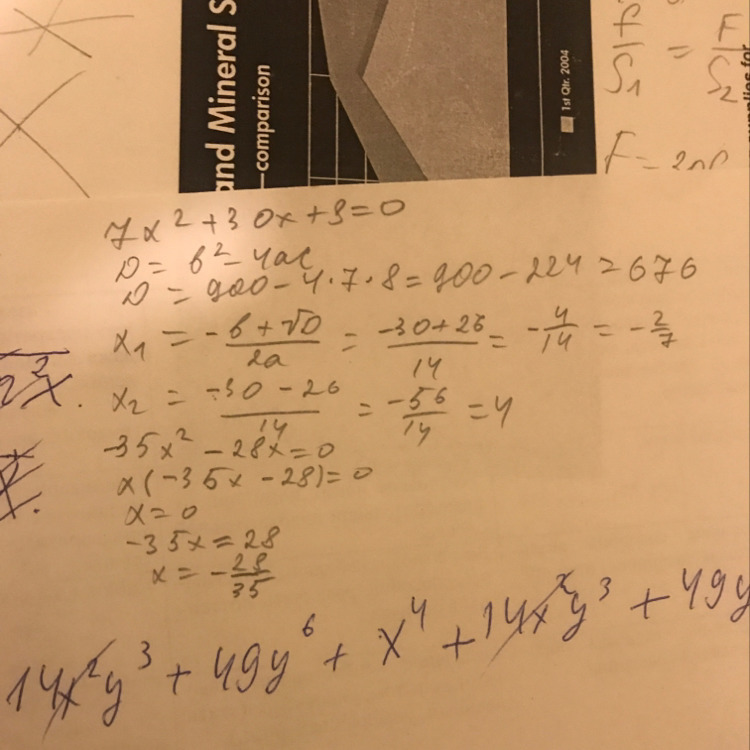 and Mineral S
—comparison
1st Qtr. 2004
f/S₁ = F/S₂
7x² + 30x + 8 = 0
D = b² - 4ac
D = 900 - 4·7·8 = 900 - 224 = 676
x₁ = -b + √D / 2a = -30 + 26 / 14 = -4/14 = -2/7
x₂ = -30 - 26 / 14 = -56/14 = 4
-35x² - 28x = 0
x(-35x - 28) = 0
x = 0
-35x = 28
x = -28/35
14x²y³ + 49y⁶ + x⁴ + 14x²y³ + 49y